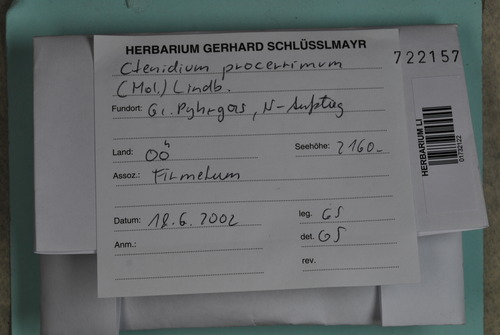 HERBARIUM GERHARD SCHLÜSSLMAYR
Ctenidium procerrimum
(Mol.) Lindb.
722157
Fundort: Gr. Pyhrgas, N-Aufstieg
Land: OÖ Seehöhe: 2160-
Assoz.: Firmetum
Datum: 18.6.2002 leg. GS
Anm.: det. GS
rev.
HERBARIUM LI
01732122